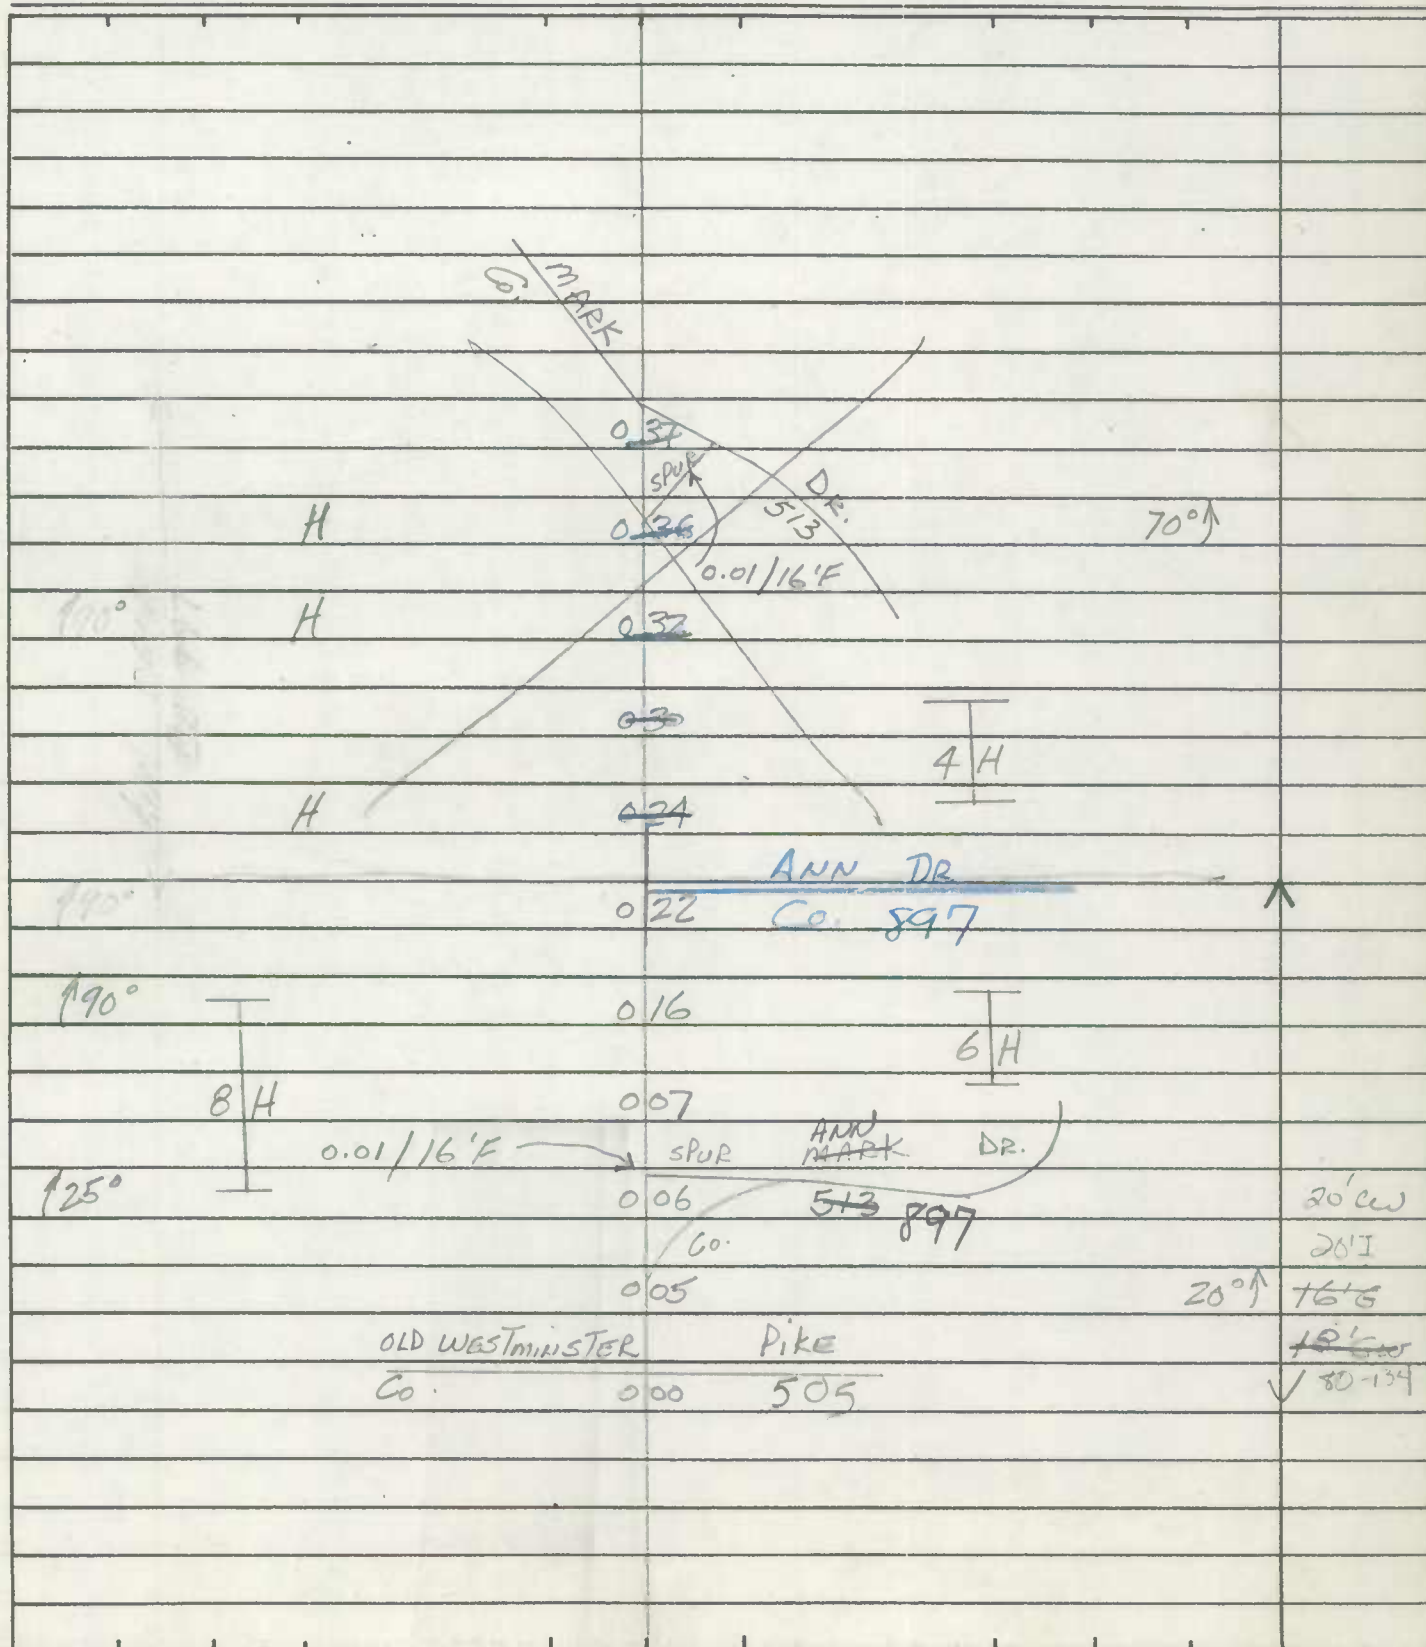 Co. MARK
0 37
SPUR
DR.
H 0 36 513 70°↑
0.01/16'F
↑90° H 0 32
0 30
4 H
H 0 24
ANN DR
↑90° 0 22 Co. 897
↑90° 0 16
6 H
8 H 0 07
ANN
0.01/16'F SPUR MARK DR.
↑25° 0 06 513 897 20'
Co. 20'I
0 05 20°↑ 16'G
OLD WESTMINSTER Pike 18'
Co. 0 00 505 80-134